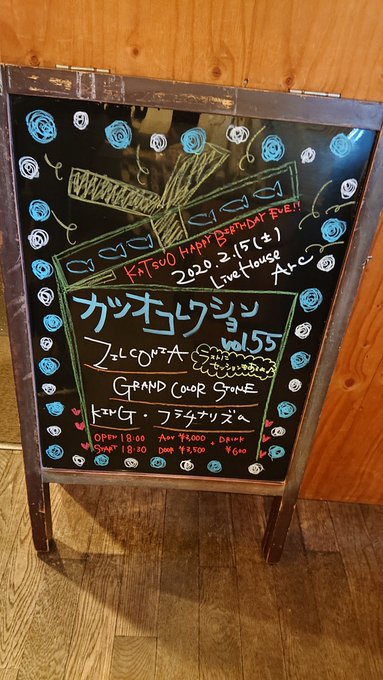 KATSUO HAPPY BIRTHDAY EVE!!
2020.2.15(土)
LiveHouse Arc
カツオコレクション
vol.55
ZILCONIA
ラストに
セッションもあるよ♪
GRAND COLOR STONE
KING・プラチナリズム
OPEN 18:00 ADV ¥3,000 + DRINK
START 18:30 DOOR ¥3,500 ¥600